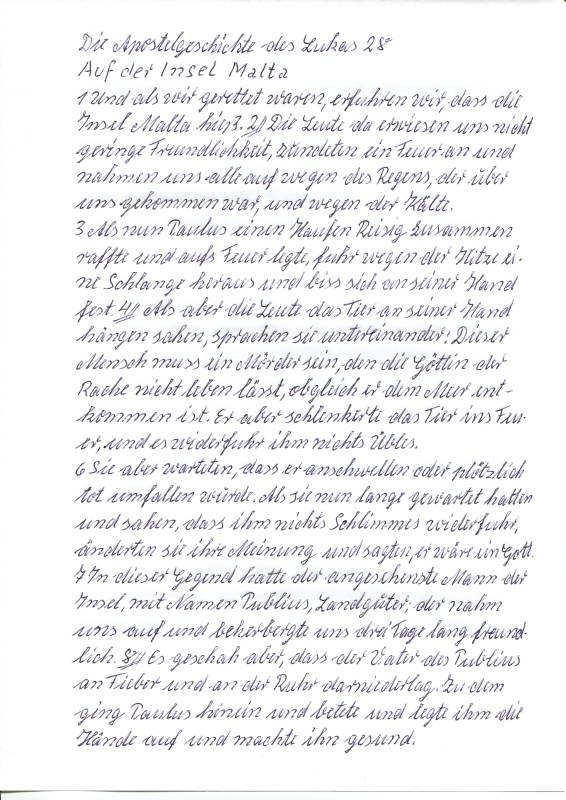 Die Apostelgeschichte des Lukas 28
Auf der Insel Malta
1 Und als wir gerettet waren, erfuhren wir, dass die
Insel Malta hieß. 2// Die Leute da erwiesen uns nicht
geringe Freundlichkeit, zündeten ein Feuer an und
nahmen uns alle auf wegen des Regens, der über
uns gekommen war, und wegen der Kälte.
3 Als nun Paulus einen Haufen Reisig zusammen
raffte und aufs Feuer legte, fuhr wegen der Hitze ei-
ne Schlange heraus und biss sich an seiner Hand
fest. 4// Als aber die Leute das Tier an seiner Hand
hängen sahen, sprachen sie untereinander: Dieser
Mensch muss ein Mörder sein, den die Göttin der
Rache nicht leben lässt, obgleich er dem Meer ent-
kommen ist. Er aber schlenkerte das Tier ins Feu-
er, und es widerfuhr ihm nichts Übles.
6 Sie aber warteten, dass er anschwellen oder plötzlich
tot umfallen würde. Als sie nun lange gewartet hatten
und sahen, dass ihm nichts Schlimmes widerfuhr,
änderten sie ihre Meinung und sagten, er wäre ein Gott.
7 In dieser Gegend hatte der angesehenste Mann der
Insel, mit Namen Publius, Landgüter; der nahm
uns auf und beherbergte uns drei Tage lang freund-
lich. 8// Es geschah aber, dass der Vater des Publius
an Fieber und an der Ruhr darniederlag. Zu dem
ging Paulus hinein und betete und legte ihm die
Hände auf und machte ihn gesund.